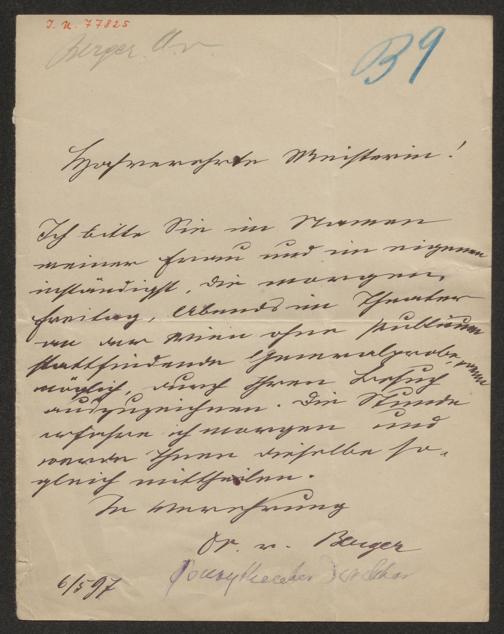 I. N. 77825
Berger A. v.
B9
Hochverehrte Meisterin!
Ich bitte Sie im Namen
meiner Frau und im eigenen
inständigst, die morgen,
Freitag, Abends im Theater
an der Wien ohne Publicum
stattfindende Generalprobe, wenn
möglich, durch Ihren Besuch
auszuzeichnen. Die Stunde
erfahre ich morgen und
werde Ihnen dieselbe so-
gleich mittheilen.
In Verehrung
Dr. v. Berger
6/5 97